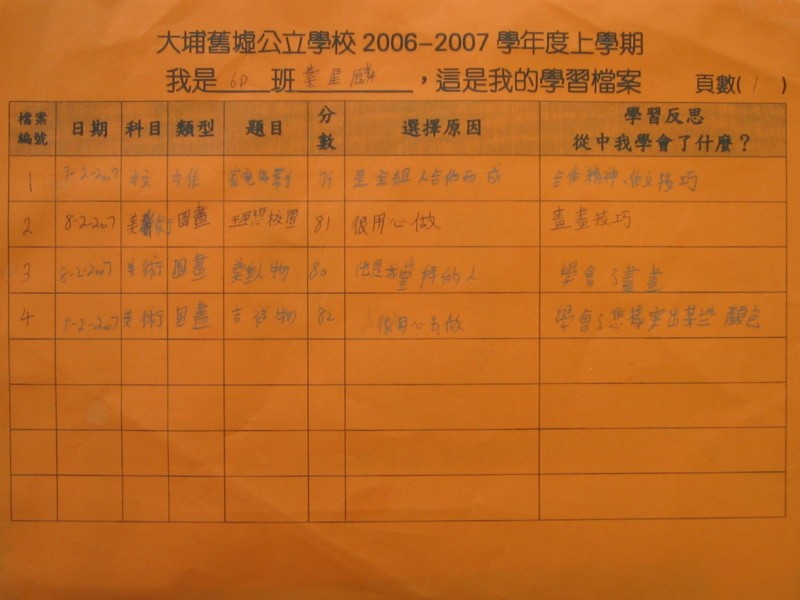 大埔舊墟公立學校 2006-2007 學年度上學期
我是 6D 班 葉星麟 ，這是我的學習檔案 頁數( 1 )
檔案編號 日期 科目 類型 題目 分數 選擇原因 學習反思 從中我學會了什麼？
1 7-2-2007 中文 中作 是全組人合作而成 合作精神、作文技巧
2 8-2-2007 美術 圖畫 理想校園 81 很用心做 畫畫技巧
3 8-2-2007 美術 圖畫 人物 80 的人 學會了畫畫
4 9-2-2007 美術 圖畫 吉祥物 82 很用心去做 學會了怎樣突出某些顏色